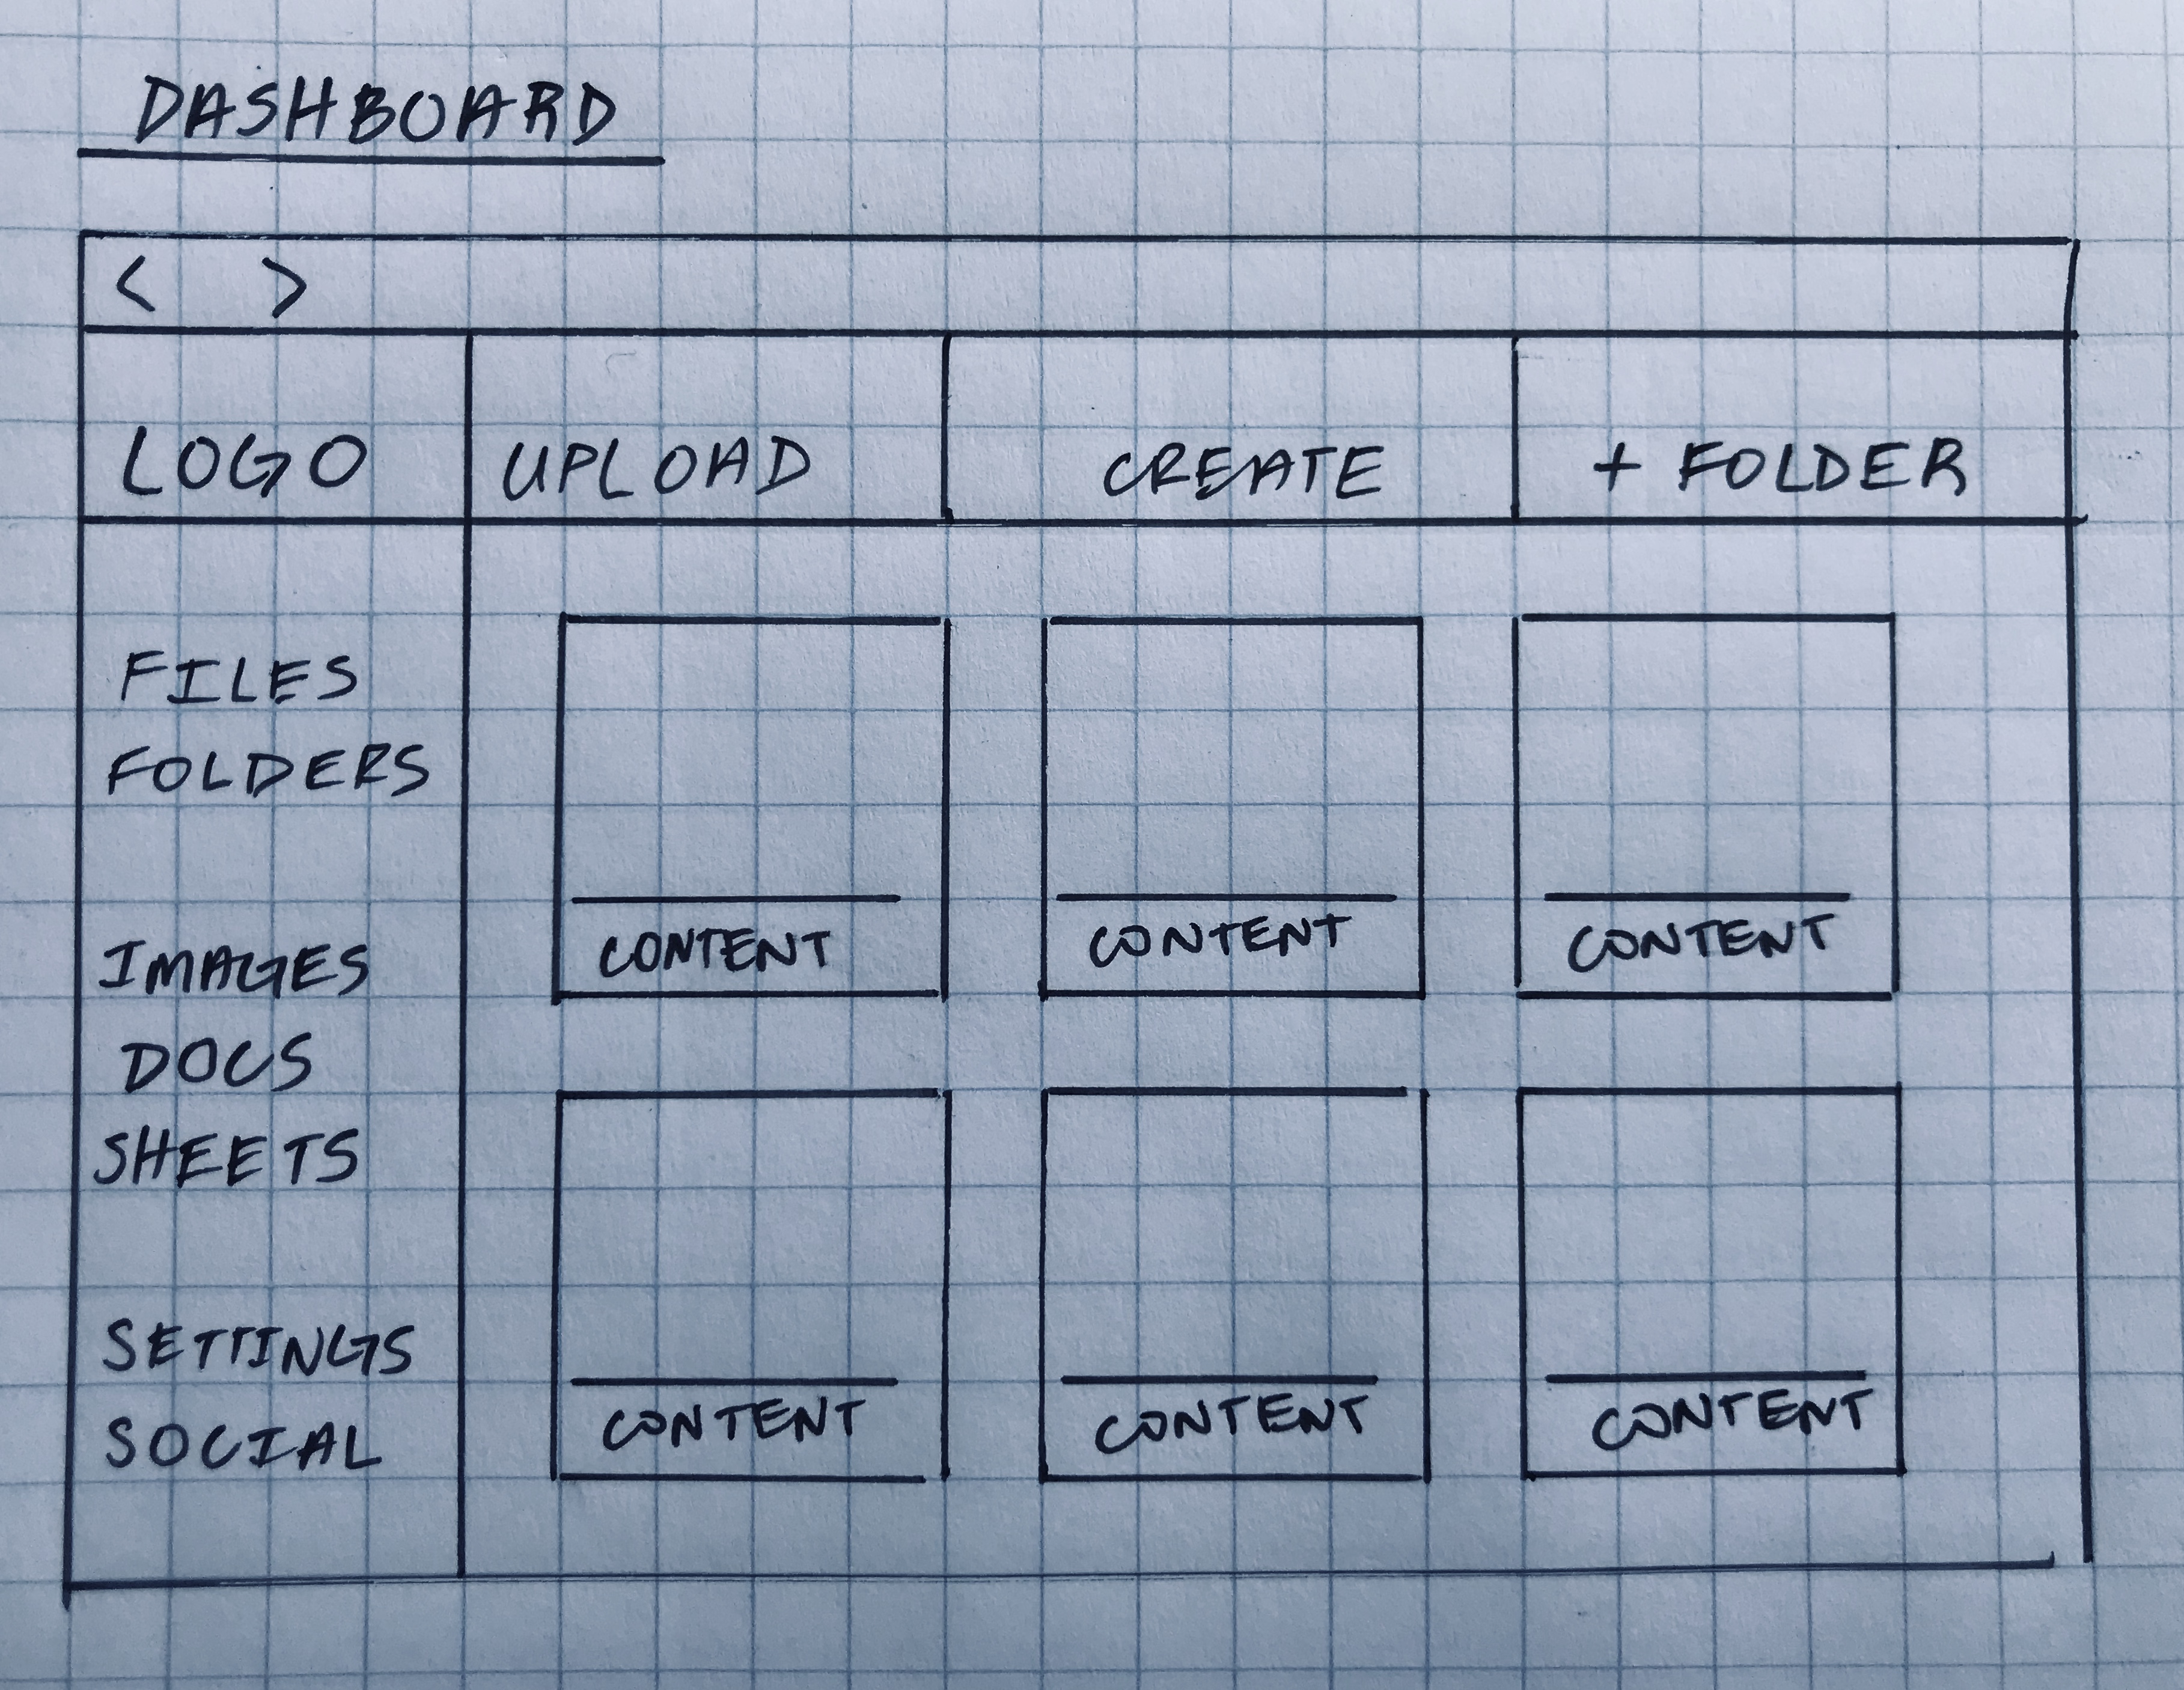 DASHBOARD
< >
LOGO UPLOAD CREATE + FOLDER
FILES
FOLDERS
IMAGES
DOCS
SHEETS
SETTINGS
SOCIAL
CONTENT CONTENT CONTENT
CONTENT CONTENT CONTENT